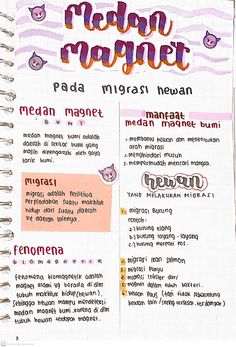 medan
magnet
pada migrasi hewan
medan magnet
BUMI
medan magnet bumi adalah
daerah di sekitar bumi yang
masih dipengaruhi oleh gaya
tarik bumi.
migrasi
migrasi adalah peristiwa
perpindahan suatu makhluk
hidup dari suatu daerah
ke daerah lainnya.
fenomena
biomagnetik
fenomena biomagnetik adalah
magnet alami yg berada di dlm
tubuh makhluk hidup (hewan),
sehingga hewan mampu mendeteksi
medan magnet bumi karena di dlm
tubuh hewan terdapat magnet.
manfaat
medan magnet bumi
1. membantu hewan dlm menentukan
arah migrasi
2. menghindari musuh
3. mempermudah mencari mangsa.
hewan
YANG MELAKUKAN MIGRASI
1. migrasi burung
contoh:
a) burung elang
b) burung layang - layang
c) burung merpati pos.
2. migrasi ikan salmon
3. migrasi penyu
4. migrasi lobster duri
5. magnet dalam tubuh bakteri.
6. hewan paus (tdk tidak melakukan